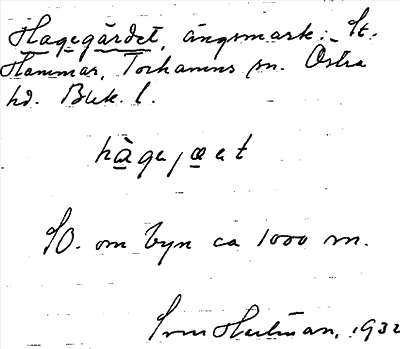 Hagegärdet, ängsmark. St.
Hammar, Torhamns sn. Östra
hd. Blek. l.
hàgejæet
SO. om byn ca 1000 m.
1932